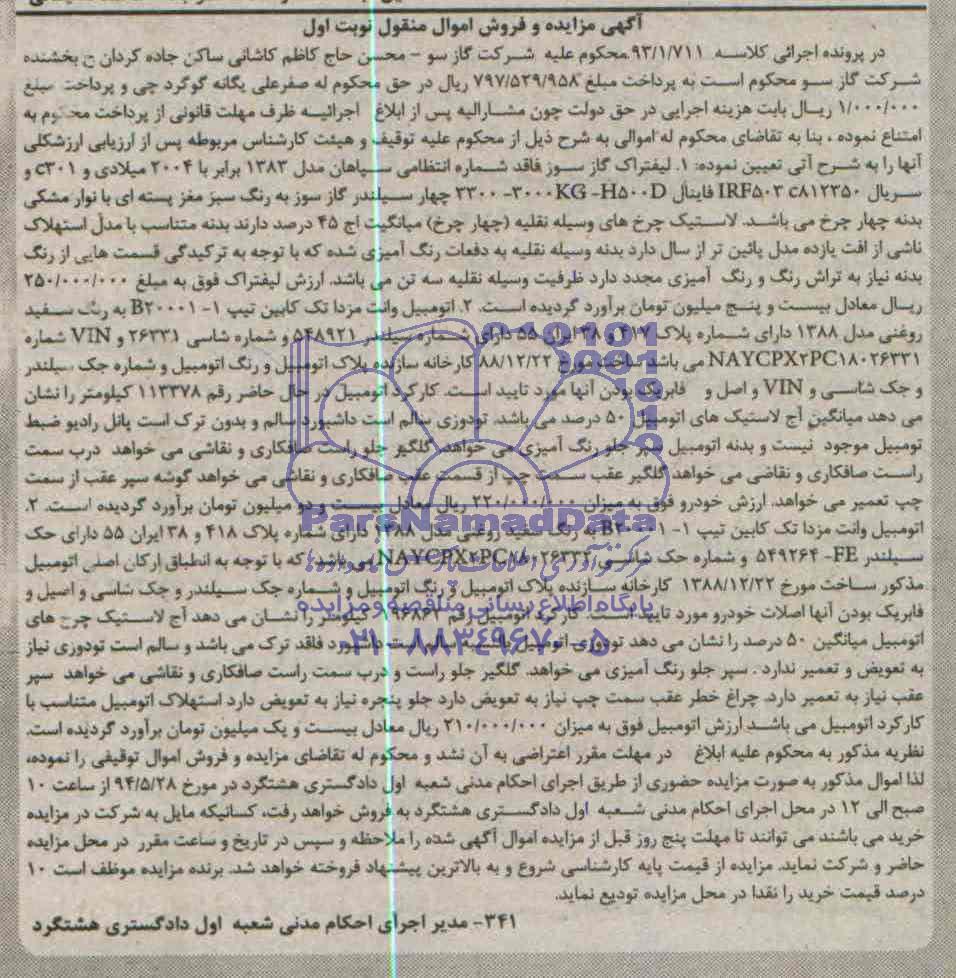 آگهی مزایده و فروش اموال منقول نوبت اول
در پرونده اجرائی کلاسه ۹۳/۱/۷۱۱ محکوم علیه شرکت گاز سو - محسن حاج کاظم کاشانی ساکن جاده کردان خ بخشنده
شرکت گاز سو محکوم است به پرداخت مبلغ ۷۹۷/۵۲۹/۹۵۸ ریال در حق محکوم له صفرعلی یگانه گوگرد چی و پرداخت مبلغ
۱/۰۰۰/۰۰۰ ریال بابت هزینه اجرایی در حق دولت چون مشارالیه پس از ابلاغ اجرائیه ظرف مهلت قانونی از پرداخت محکوم به
امتناع نموده ، بنا به تقاضای محکوم له اموالی به شرح ذیل از محکوم علیه توقیف و هیئت کارشناس مربوطه پس از ارزیابی ارزشکلی
آنها را به شرح آتی تعیین نموده: ۱. لیفتراک گاز سوز فاقد شماره انتظامی سپاهان مدل ۱۳۸۳ برابر با ۲۰۰۴ میلادی و c۳۰۱ و
سریال IRF۵۰۳ c۸۱۲۳۵۰ فاینال ۳۳۰۰ -۳۰۰۰KG -H۵۰۰D چهار سیلندر گاز سوز به رنگ سبز مغز پسته ای با نوار مشکی
بدنه چهار چرخ می باشد. لاستیک چرخ های وسیله نقلیه (چهار چرخ) میانگین آج ۴۵ درصد دارند بدنه متناسب با مدل استهلاک
ناشی از افت یازده مدل پائین تر از سال دارد بدنه وسیله نقلیه به دفعات رنگ آمیزی شده که با توجه به ترکیدگی قسمت هایی از رنگ
بدنه نیاز به تراش رنگ و رنگ آمیزی مجدد دارد ظرفیت وسیله نقلیه سه تن می باشد. ارزش لیفتراک فوق به مبلغ ۲۵۰/۰۰۰/۰۰۰
ریال معادل بیست و پنج میلیون تومان برآورد گردیده است. ۲. اتومبیل وانت مزدا تک کابین تیپ ۱- B۲۰۰۰۱ به رنگ سفید
روغنی مدل ۱۳۸۸ دارای شماره پلاک ۴۱۷ و ۳۸ ایران ۵۵ دارای شماره سیلندر ۵۴۸۹۲۱ و شماره شاسی ۲۶۳۳۱ و VIN شماره
NAYCPX۲PC۱۸۰۲۶۳۳۱ می باشد ساخت مورخ ۸۸/۱۲/۲۲ کارخانه سازنده پلاک اتومبیل و رنگ اتومبیل و شماره جک سیلندر
و جک شاسی و VIN و اصل و فابریک بودن آنها مورد تایید است. کارکرد اتومبیل در حال حاضر رقم ۱۱۳۳۷۸ کیلومتر را نشان
می دهد میانگین آج لاستیک های اتومبیل ۵۰ درصد می باشد. تودوزی سالم است داشبورد سالم و بدون ترک است پانل رادیو ضبط
تومبیل موجود نیست و بدنه اتومبیل سپر جلو رنگ آمیزی می خواهد. گلگیر جلو راست صافکاری و نقاشی می خواهد درب سمت
راست صافکاری و نقاضی می خواهد گلگیر عقب سمت چپ از قسمت عقب صافکاری و نقاشی می خواهد گوشه سپر عقب از سمت
چپ تعمیر می خواهد. ارزش خودرو فوق به میزان ۲۲۰/۰۰۰/۰۰۰ ریال معادل بیست و دو میلیون تومان برآورد گردیده است. ۲.
اتومبیل وانت مزدا تک کابین تیپ ۱- به رنگ سفید روغنی مدل ۱۳۸۸ دارای شماره پلاک ۴۱۸ و ۳۸ ایران ۵۵ دارای حک
سیلندر ۵۴۹۲۶۴ -FE و شماره حک شاسی NAYCPX۲PC۱۸۰۲۶۳۳۲ می باشد که با توجه به انطباق ارکان اصلی اتومبیل
مذکور ساخت مورخ ۱۳۸۸/۱۲/۲۲ کارخانه سازنده پلاک اتومبیل و رنگ اتومبیل و شماره جک سیلندر و جک شاسی و اصیل و
فابریک بودن آنها اصلات خودرو مورد تایید است. کارکرد اتومبیل رقم ۱۹۶۸۶۱ کیلومتر را نشان می دهد آج لاستیک چرخ های
اتومبیل میانگین ۵۰ درصد را نشان می دهد تودوزی اتومبیل سالم است داشبورد فاقد ترک می باشد و سالم است تودوزی نیاز
به تعویض و تعمیر ندارد . سپر جلو رنگ آمیزی می خواهد. گلگیر جلو راست و درب سمت راست صافکاری و نقاشی می خواهد سپر
عقب نیاز به تعمیر دارد. چراغ خطر عقب سمت چپ نیاز به تعویض دارد جلو پنجره نیاز به تعویض دارد استهلاک اتومبیل متناسب با
کارکرد اتومبیل می باشد ارزش اتومبیل فوق به میزان ۲۱۰/۰۰۰/۰۰۰ ریال معادل بیست و یک میلیون تومان برآورد گردیده است.
نظریه مذکور به محکوم علیه ابلاغ در مهلت مقرر اعتراضی به آن نشد و محکوم له تقاضای مزایده و فروش اموال توقیفی را نموده،
لذا اموال مذکور به صورت مزایده حضوری از طریق اجرای احکام مدنی شعبه اول دادگستری هشتگرد در مورخ ۹۴/۵/۲۸ از ساعت ۱۰
صبح الی ۱۲ در محل اجرای احکام مدنی شعبه اول دادگستری هشتگرد به فروش خواهد رفت، کسانیکه مایل به شرکت در مزایده
خرید می باشند می توانند تا مهلت پنج روز قبل از مزایده اموال آگهی شده را ملاحظه و سپس در تاریخ و ساعت مقرر در محل مزایده
حاضر و شرکت نماید. مزایده از قیمت پایه کارشناسی شروع و به بالاترین پیشنهاد فروخته خواهد شد. برنده مزایده موظف است ۱۰
درصد قیمت خرید را نقدا در محل مزایده تودیع نماید.
۳۴۱- مدیر اجرای احکام مدنی شعبه اول دادگستری هشتگرد
ParsNamadData
پایگاه اطلاع رسانی مناقصه و مزایده
۰۲۱-۸۸۳۴۹۶۷۰-۵